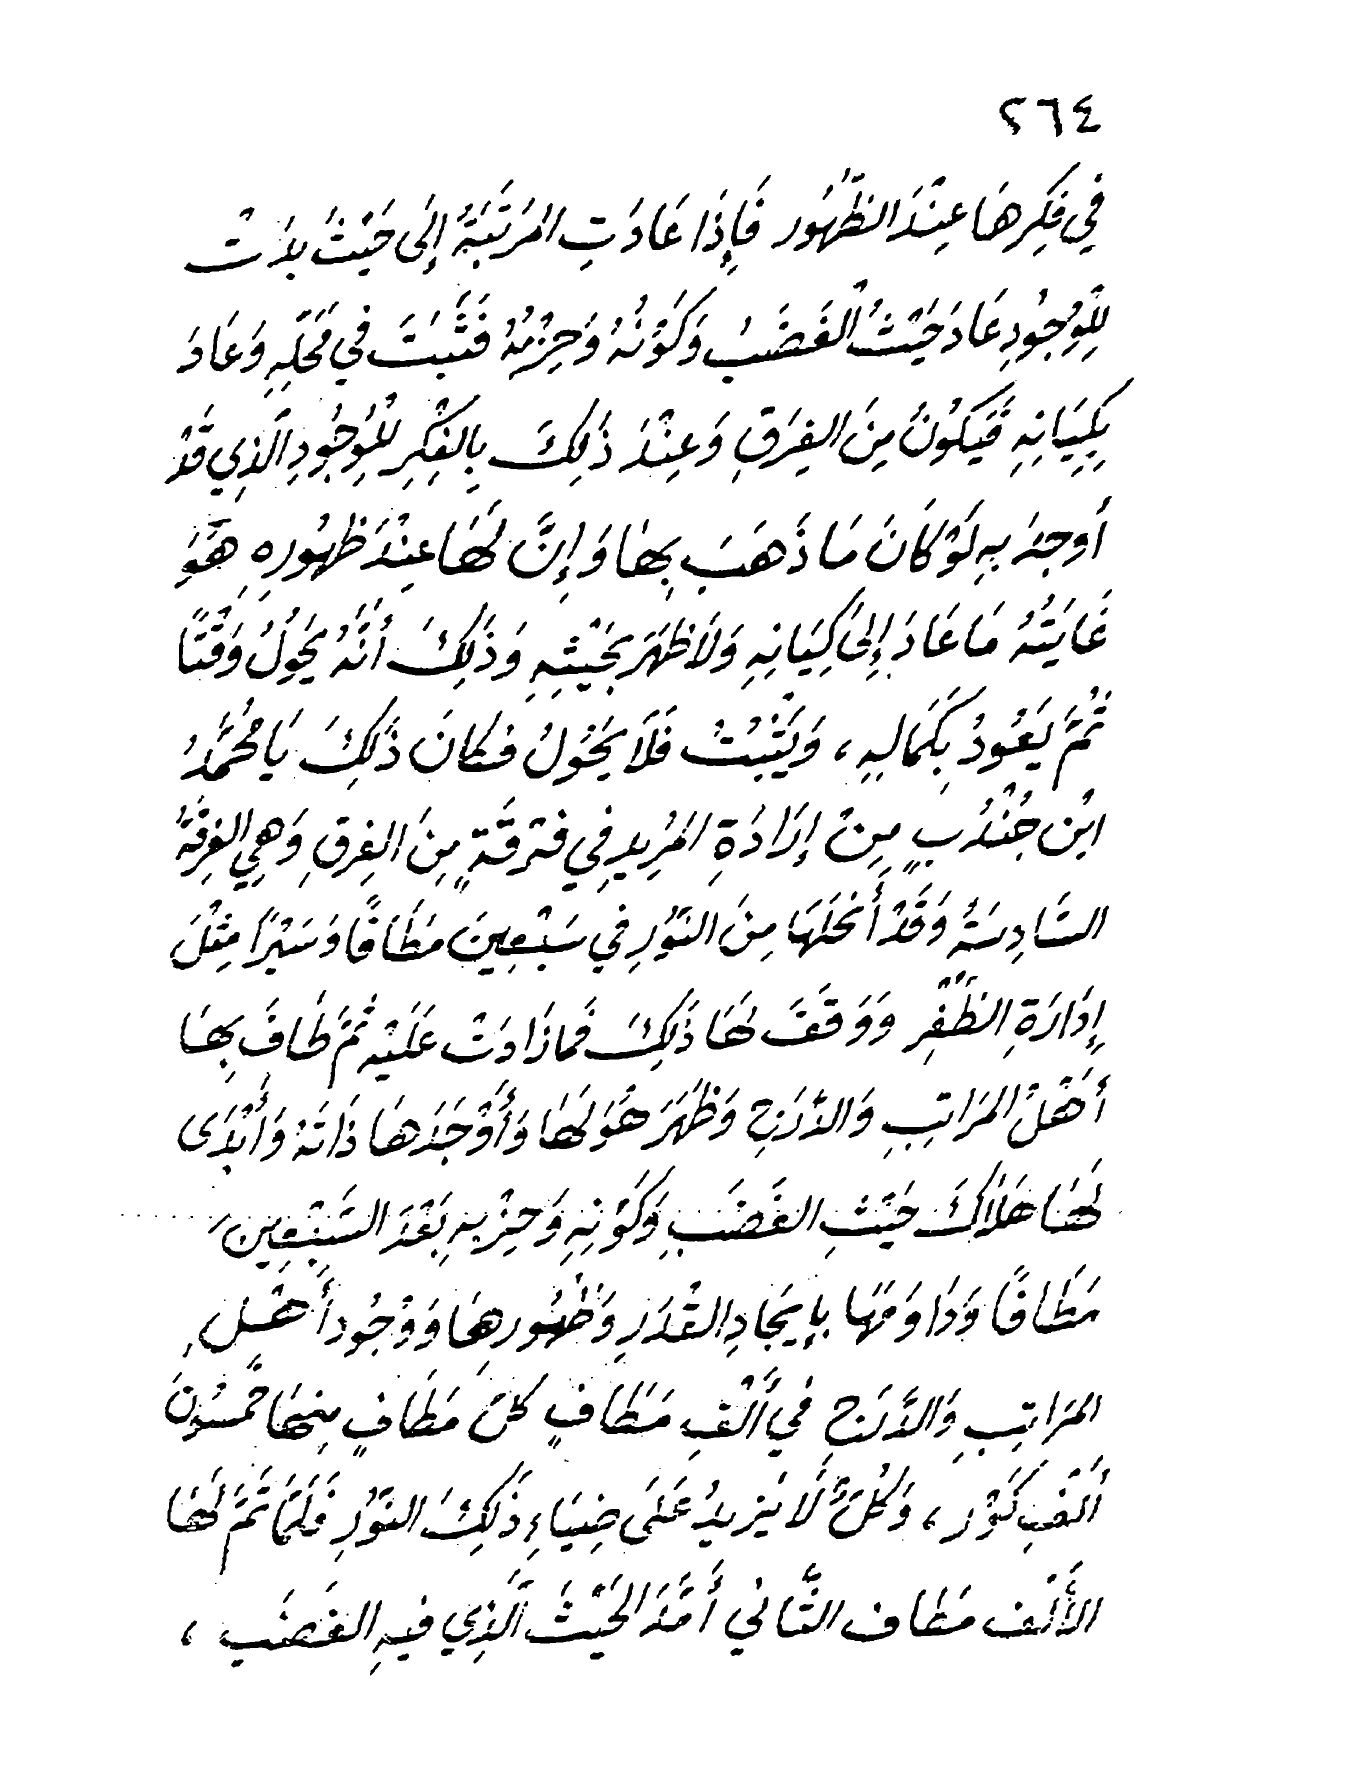 ٢٦٤
فِي فِكِرِهَا عِنْدَ الظُّهُور فَإِذَا عَادَتِ المَرتَبَةُ إِلَى حَيْثُ بدَاتْ
لِلْوجُودِ عَادَ حَيْثُ الْغَضَبُ وَكَوْنُهُ وَحِزْبُهُ فَثَبَتَ فِي مَحَلِّهِ وَعَادَ
بِكِيَانِهِ فَيَكُونُ مِنَ الفِرَقِ وَعِنْدَ ذَلِكَ بِالفِكِرِ لِلْوجُودِ الَّذِي قَدْ
أَوجدَ بِهِ لَوْ كَانَ مَا ذَهَبَ بِهَا وَإِنَّ لَهَا عِنْدَ ظِهُورِهِ هُوَ
غَايَتُهُ مَا عَادَ إِلىَ كِيَانِهِ وَلَا ظَهَرَ بِحَيْثِهِ وَذَلِكَ أَنَّهُ يَحُولُ وَقْتًا
ثُمَّ يَعُودُ بِكَمَالِهِ ، وَيَثْبُتُ فَلَا يَحُولُ فكَانَ ذَلِكَ يَا مُحَمَّدُ
ابْن جُنْدُبٍ مِنْ إِرَادَةِ المُرِيدِ فِي فرْقَةٍ مِنَ الفِرقِ وَهِي الفِرقَةُ
السَّادِسَةُ وَقَدْ أَنحَلَهَا مِنَ النُّورِ فِي سَبْعِينَ مَطَافًا وَسَيْرًا مِثْلَ
إِدَارَةِ الظُّفْرِ وَوَقَفَ لَهَا ذَلِكَ فَمازَادَتْ عَلَيْهِ ثُمَّ طَافَ بِهَا
أَهْلُ المَرَاتِبِ وَالدَّرَجِ وَظَهَرَ هُوَ لَهَا وَأَوْجَدَهَا ذَاتَهُ وَأَبْدَى
لَهَا هَلَاكَ حَيْثِ الغَضَبِ وَكَوْنِهِ وَحِزْبِهِ بَعْدَ السَّبْعِينَ
مَطَافًا وَدَاوَمَهَا بِإِيجَادِ القْدَرِ وَظُهُورِهَا وَوُجُود أَهْلِ
المَرَاتِبِ وَالدَّرَجِ فِي أَلْفِ مَطَافٍ كلُّ مَطَافٍ مِنهَا خَمسُونَ
أَلفَ كَوْر ، وَكُلٌّ لَا يَزِيدُ عَلَى ضِيَاءِ ذَلِكَ النُّورِ فَلَمَّا تَمَّ لَهَا
الأَلْف مَطاف الثَّاني أَمَّدَ الحَيْثَ الَّذِي فيهِ الغَضَب ،